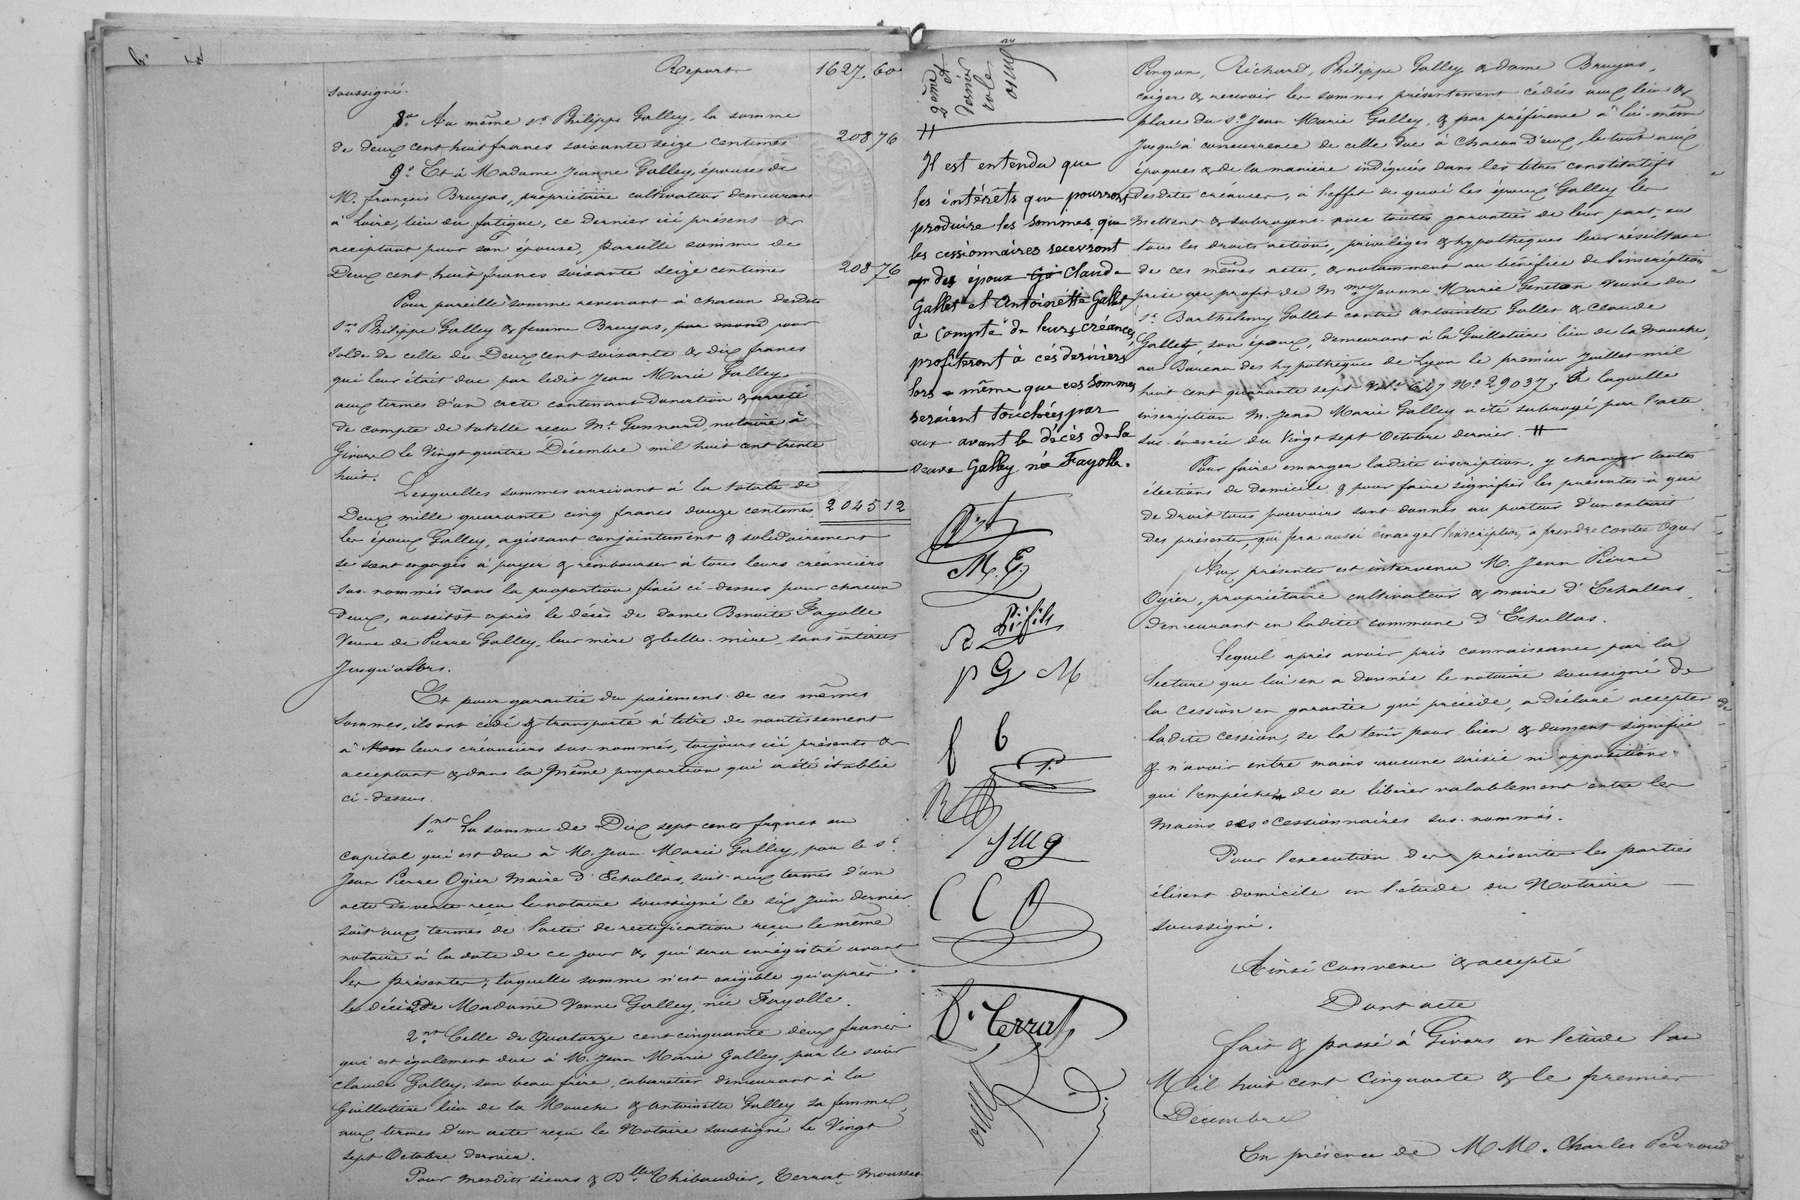 Report 1627.60
soussigné.
8° Au même Sr Philippe Galley, la somme
de deux cent huit francs soixante seize centimes 208 76
9° Et à Madame Jeanne Galley, épouse de
M. françois Bruyas, propriétaire cultivateur demeurant
à Loire, lieu du fatigue, ce dernier ici présent &
acceptant pour son épouse, pareille somme de
Deux cent huit francs soixante seize centimes 208 76
Pour pareille somme revenant à chacun desdits
Srs Philippe Galley & femme Bruyas, pour
solde de celle de Deux cent soixante & dix francs
qui leur était due par ledit Jean Marie Galley
aux termes d'un acte contenant donation & arrêté
de compte de tutelle reçu Mt notaire à
Givors le Vingt quatre Décembre mil huit cent trente
huit.
Lesquelles sommes arrivant à la totale de
Deux mille quarante cinq francs douze centimes 2045 12
les époux Galley, agissant conjointement & solidairement
se sont engagés à payer & rembourser à tous leurs créanciers
sus-nommés dans la proportion fixée ci-dessus pour chacun
d'eux, aussitôt après le décès de dame Benoite Fayolle
Veuve de Pierre Galley, leur mère & belle-mère, sans intérêts
jusqu'alors.
Et pour garantie du paiement de ces mêmes
sommes, ils ont cédé & transporté à titre de nantissement
à leurs créanciers sus-nommés, toujours ici présents &
acceptant & dans la même proportion qui a été établie
ci-dessus.
1nt La somme de Dix sept cents francs en
capital qui est due à M. Jean Marie Galley, par le Sr
Jean Pierre Ogier Maire d'Echallas, soit aux termes d'un
acte de vente reçu le notaire soussigné le six juin dernier
soit aux termes de l'acte de rectification reçu le même
notaire à la date de ce jour & qui sera enrégistré avant
les présentes; laquelle somme n'est exigible qu'après
le décès de Madame Veuve Galley, née Fayolle.
2nt Celle de Quatorze cent cinquante deux francs
qui est également due à M. Jean Marie Galley, par le Sieur
Claude Galley, son beau frère, cabaretier demeurant à la
Guillotière lieu de la Mouche & Antoinette Galley sa femme,
aux termes d'un acte reçu le Notaire soussigné le Vingt
sept Octobre dernier.
Pour mesdits sieurs & Dlle Thibaudier, Terrat, Mousset
2ème
et
dernier
rôle
Il est entendu que
les intérêts que pourront
produire les sommes que
les cessionnaires recevront
des époux Claude
Gallet et Antoinette Gallet
à compte de leurs créances,
profiteront à ces derniers
lors-même que ces sommes
seraient touchées par
eux avant le décès de la
veuve Galley née Fayolle.
M. G.
P G M
C C O
Terrat
Pingon, Richard, Philippe Galley & dame Bruyas,
exiger & recevoir les sommes présentement cédées aux lieu &
place du Sr Jean Marie Galley, & par préférence à lui-même
jusqu'à concurrence de celle due à chacun d'eux, le tout aux
époques & de la manière indiquées dans les titres constitutifs
desdites créances, à l'effet de quoi les époux Galley les
mettent & subrogent avec toutes garanties de leur part, en
tous les droits actions, privilèges & hypothèques leur résultant
de ces mêmes actes, & notamment au bénéfice de l'inscription
prise au profit de Mme Jeanne Marie Veneton veuve du
Sr Barthélemy Gallet contre Antoinette Gallet & Claude
Galley, son époux, demeurant à la Guillotière lieu de la Mouche,
au Bureau des hypothèques de Lyon le premier Juillet mil
huit cent quarante sept No 29037, à laquelle
inscription M. Jean Marie Galley a été subrogé par l'acte
sus-énoncé du Vingt sept Octobre dernier.
Pour faire émarger ladite inscription, y changer toutes
élections de domicile & pour faire signifier les présentes à qui
de droit tous pouvoirs sont donnés au porteur d'un extrait
des présentes, qui fera aussi émarger l'inscription à prendre contre Ogier
Aux présentes est intervenu M. Jean Pierre
Ogier, propriétaire cultivateur & maire d'Echallas,
demeurant en ladite commune d'Echallas.
Lequel après avoir pris connaissance par la
lecture que lui en a donnée le notaire soussigné de
la cession en garantie qui précède, a déclaré accepter
ladite cession, se la tenir pour bien & dument signifiée
& n'avoir entre mains aucune saisie ni opposition
qui l'empêche de se libérer valablement entre les
mains des cessionnaires sus-nommés.
Pour l'exécution des présentes les parties
élisent domicile en l'étude du Notaire
soussigné.
Ainsi convenu & accepté
Dont acte
fait & passé à Givors en l'étude l'an
Mil huit cent cinquante & le premier
Décembre
En présence de MM. Charles Perraud